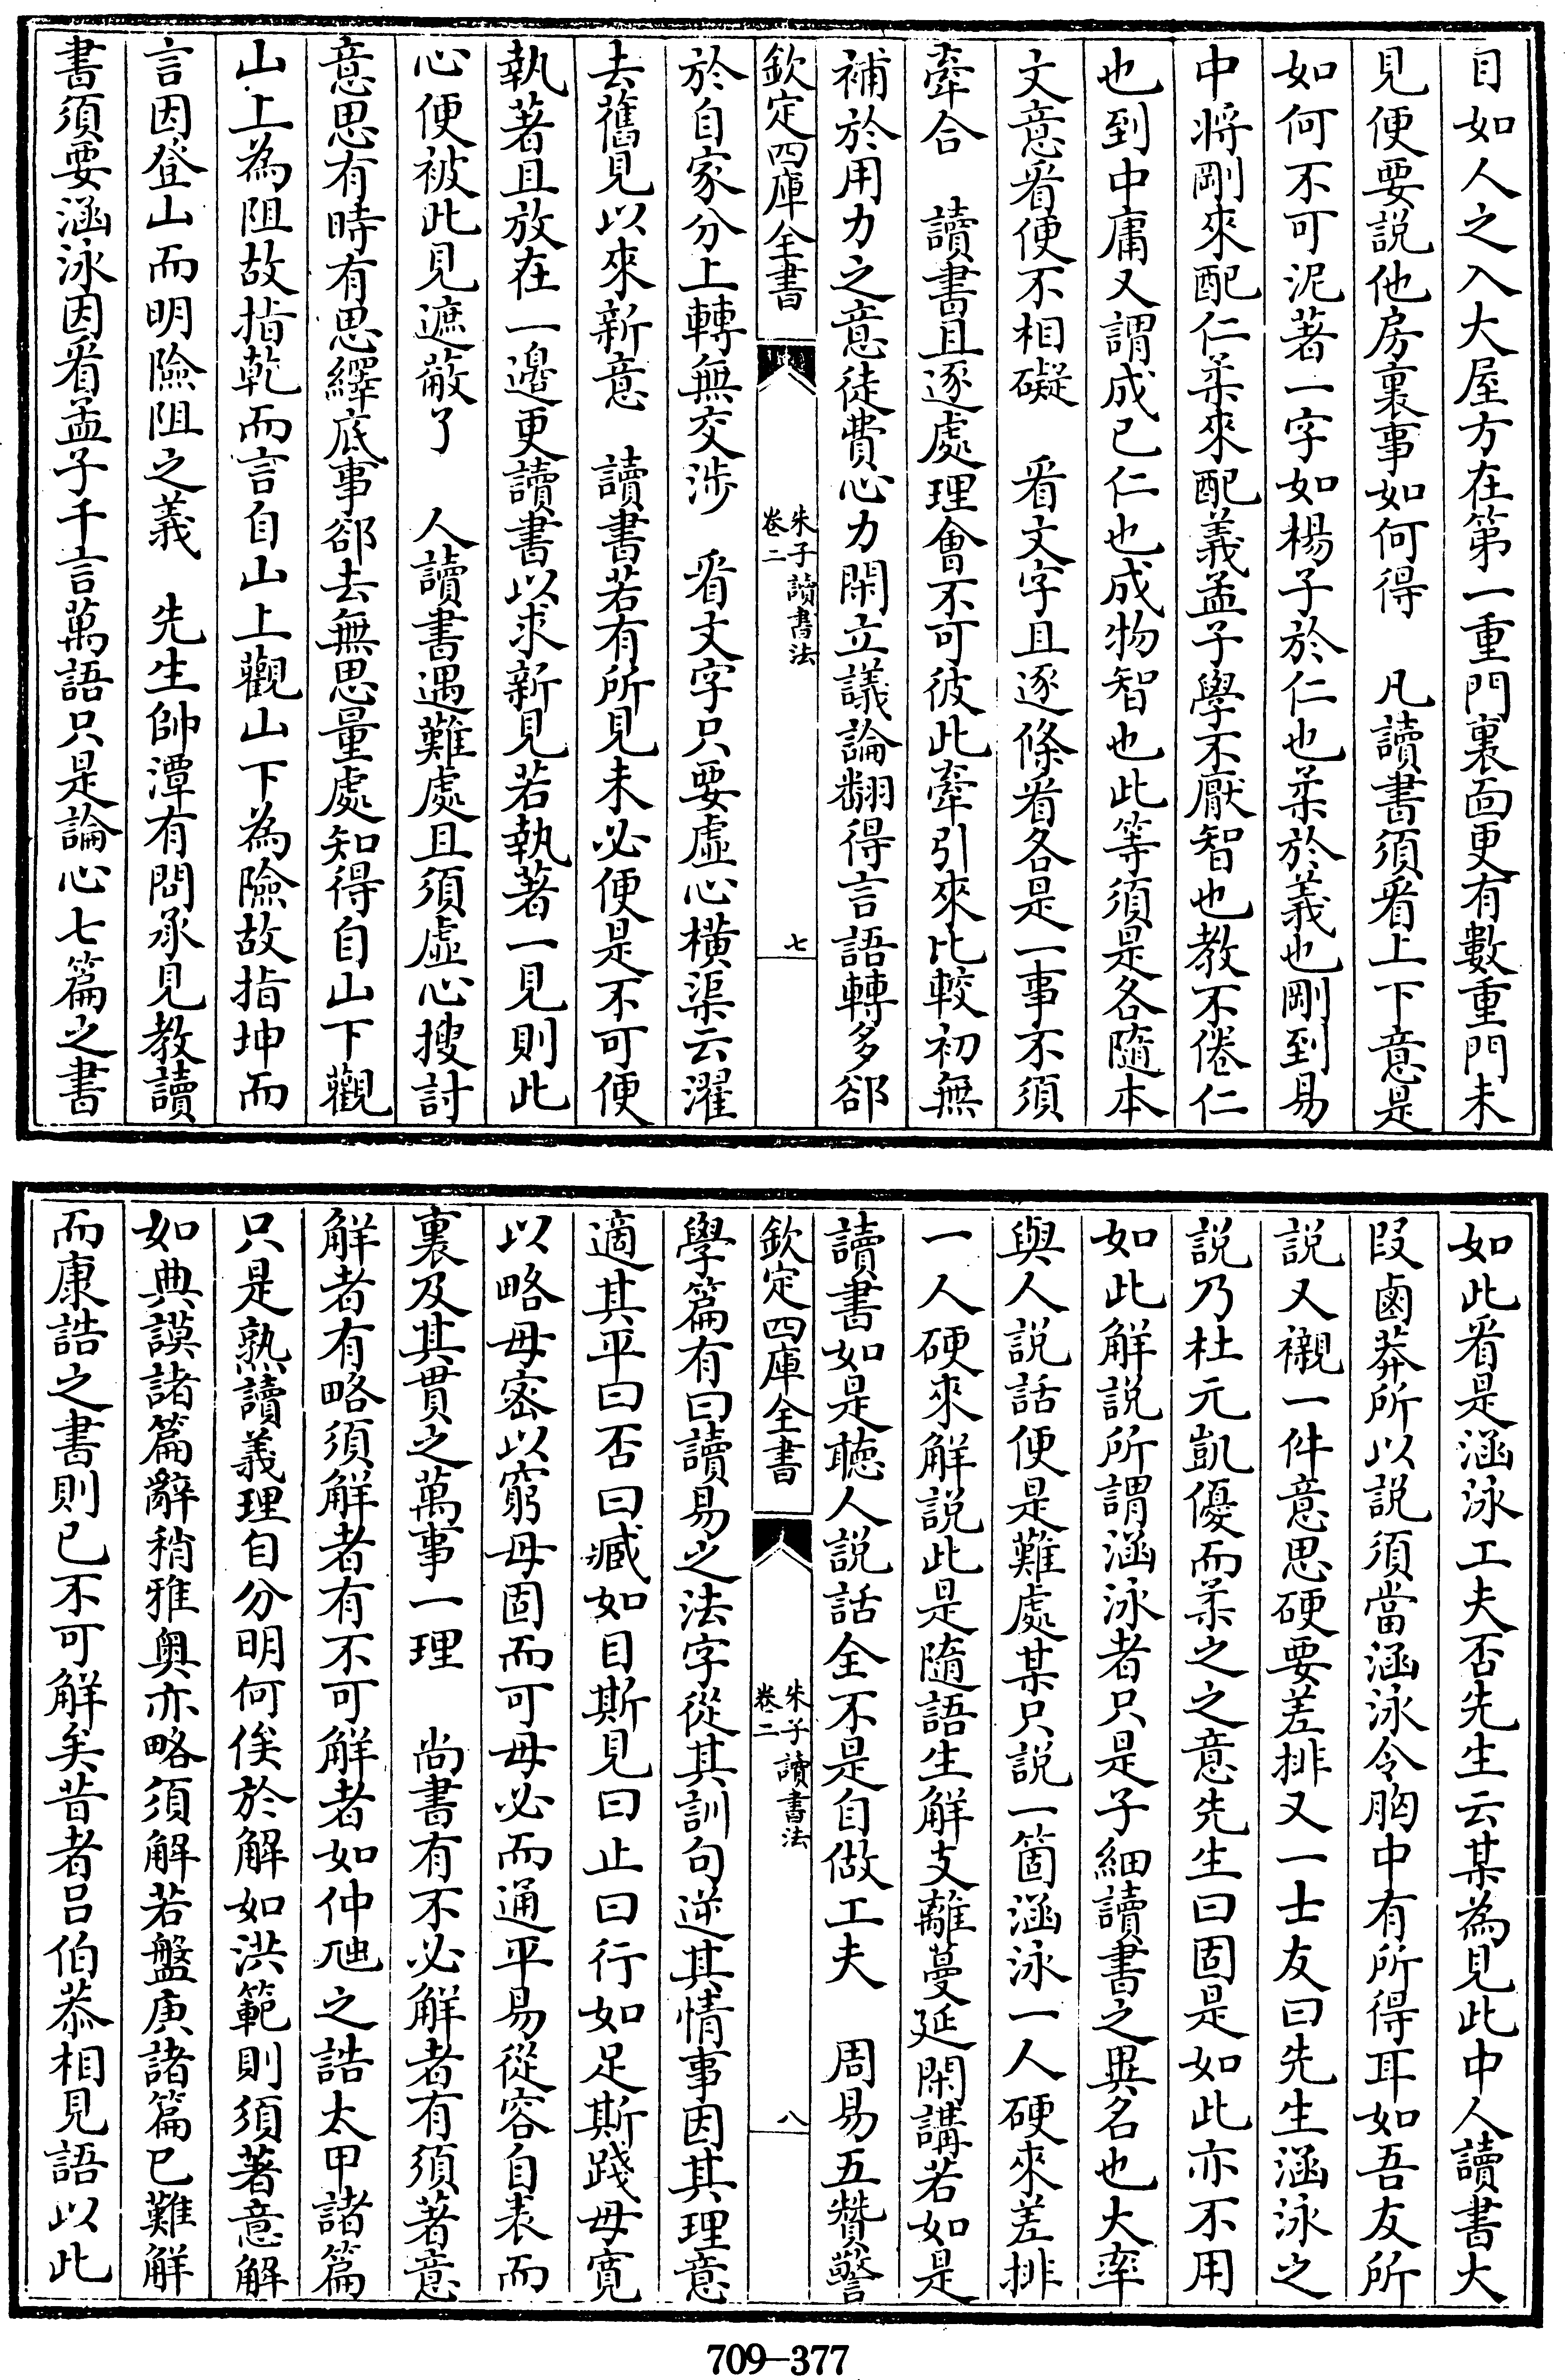 目如人之入大屋方在第一重門裏面更有數重門未
見便要說他房裏事如何得　凡讀書須看上下意是
如何不可泥著一字如楊子於仁也柔於義也剛到易
中將剛來配仁柔來配義孟子學不厭智也教不倦仁
也到中庸又謂成已仁也成物智也此等須是各隨本
文意看便不相礙　看文字且逐條看各是一事不須
牽合　讀書且逐處理會不可彼此牽引來比較初無
補於用力之意徒費心力閑立議論翻得言語轉多郤
欽定四庫全書
朱子讀書法
卷二
七
於自家分上轉無交涉　看文字只要虛心橫渠云濯
去舊見以來新意　讀書若有所見未必便是不可便
執著且放在一邊更讀書以求新見若執著一見則此
心便被此見遮蔽了　人讀書遇難處且須虛心搜討
意思有時有思繹底事郤去無思量處知得自山下觀
山上為阻故指乾而言自山上觀山下為險故指坤而
言因登山而明險阻之義　先生帥潭有問承見教讀
書須要涵泳因看孟子千言萬語只是論心七篇之書
如此看是涵泳工夫否先生云某為見此中人讀書大
段鹵莽所以說須當涵泳令胸中有所得耳如吾友所
說又襯一件意思硬要差排又一士友曰先生涵泳之
說乃杜元凱優而柔之之意先生曰固是如此亦不用
如此解說所謂涵泳者只是子細讀書之異名也大率
與人說話便是難處某只說一箇涵泳一人硬來差排
一人硬來解說此是隨語生解支離蔓延閑講若如是
讀書如是聽人說話全不是自做工夫　周易五贊警
欽定四庫全書
朱子讀書法
卷二
八
學篇有曰讀易之法字從其訓句逆其情事因其理意
適其平曰否曰臧如目斯見曰止曰行如足斯踐毋寬
以略毋密以窮毋固而可毋必而通平易從容自表而
裏及其貫之萬事一理　尚書有不必解者有須著意
解者有略須解者有不可解者如仲虺之誥太甲諸篇
只是熟讀義理自分明何俟於解如洪範則須著意解
如典謨諸篇辭稍雅奧亦略須解若盤庚諸篇已難解
而康誥之書則已不可解矣昔者呂伯恭相見語以此
709-377